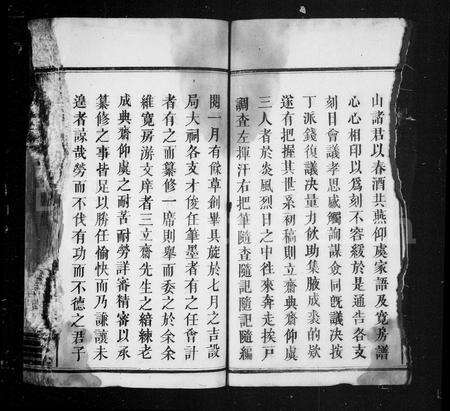 山諸君以春酒共燕仰虞家語及寬房譜
心心相印以爲刻不容緩於是通告各支
刻日會議孝思感觸詢謀僉同旣議決按
丁派錢復議決量力飲助集腋成裘的欵
遂有把握其世系初稿則立齋典齋仰虞
三人者於炎風烈日之中徃來奔走挨戸
調查左揮汗右把筆隨查隨記隨記隨編
閱一月有餘草創畢具旋於七月之吉設
局大祠各支才俊任筆墨者有之任會計
者有之而纂修一席則舉而委之於余余
維寬房游文庠者三立齋先生之績練老
成典齋仰虞之耐苦耐勞詳審精密以承
纂修之事皆足以勝任愉快而乃謙讓未
遑者諒哉勞而不伐有功而不德之君子